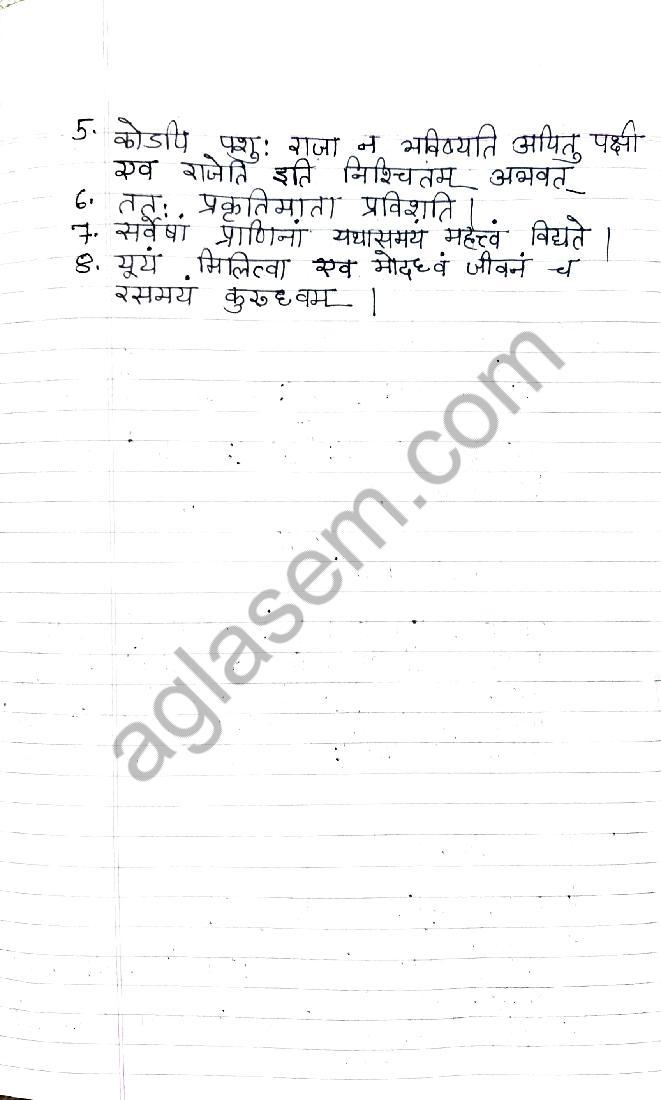 5. कोडपि पशुः राजा न भविष्यति अपितु पक्षी
एव राजेति इति निश्चितम् अभवत्
6. ततः प्रकृतिमाता प्रविशति |
7. सर्वेषां प्राणिनां यथासमयं महत्त्वं विद्यते |
8. यूयं मिलित्वा एव मोदध्वं जीवनं च
रसमयं कुरुध्वम् |
aglasem.com